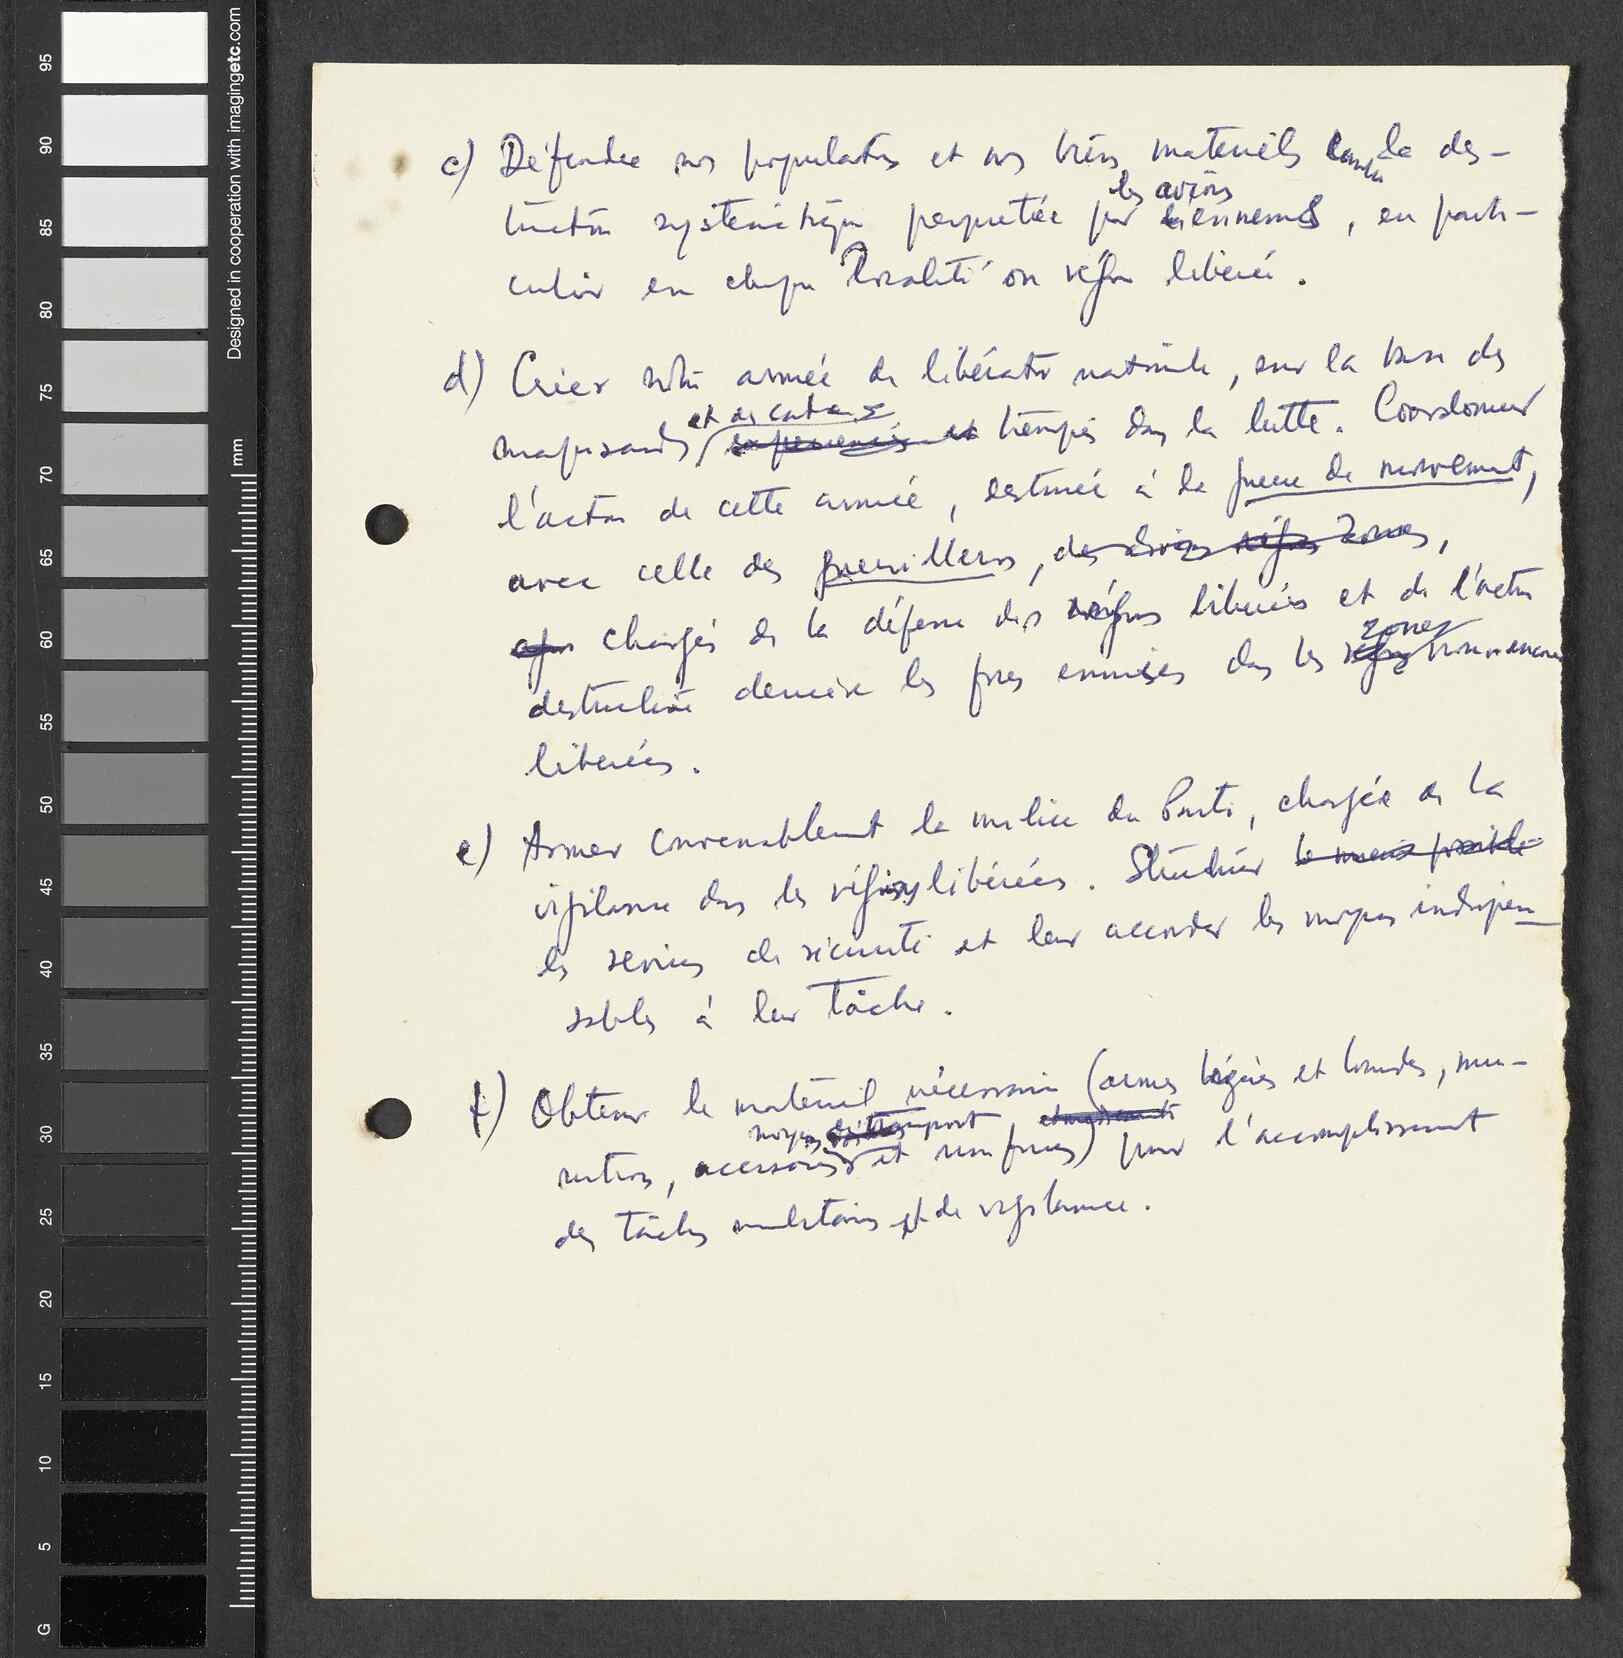 c) Défendre nos populations et nos biens matériels contre la des-
truction systématique perpetrée par les avions ennemis, en parti-
culier en chaque localité ou région liberée.
d) Créer notre armée de libération nationale, sur la base des
maquisards et de cadres trempés dans la lutte. Coordonner
l'action de cette armée, destinée à la guerre de mouvement,
avec celle des guerilleros, des zones,
chargés de la défense des régions liberées et de l'action
destructive derrière les forces ennemies dans les zones non encore
liberées.
e) Armer convenablement la milice du Parti, chargée de la
vigilance dans les régions libérées. Structurer le mieux possible
les services de sécurité et leur accorder les moyens indispen-
sables à leur tâche.
f) Obtenir le matériel nécessaire (armes légères et lourdes, mu-
nitions, accessoires moyens transport et uniformes) pour l'accomplissement
des tâches militaires et de vigilance.
95
90
85
80
75
70
65
60
55
50
45
40
35
30
25
20
15
10
5
G
mm
Designed in cooperation with imagingetc.com